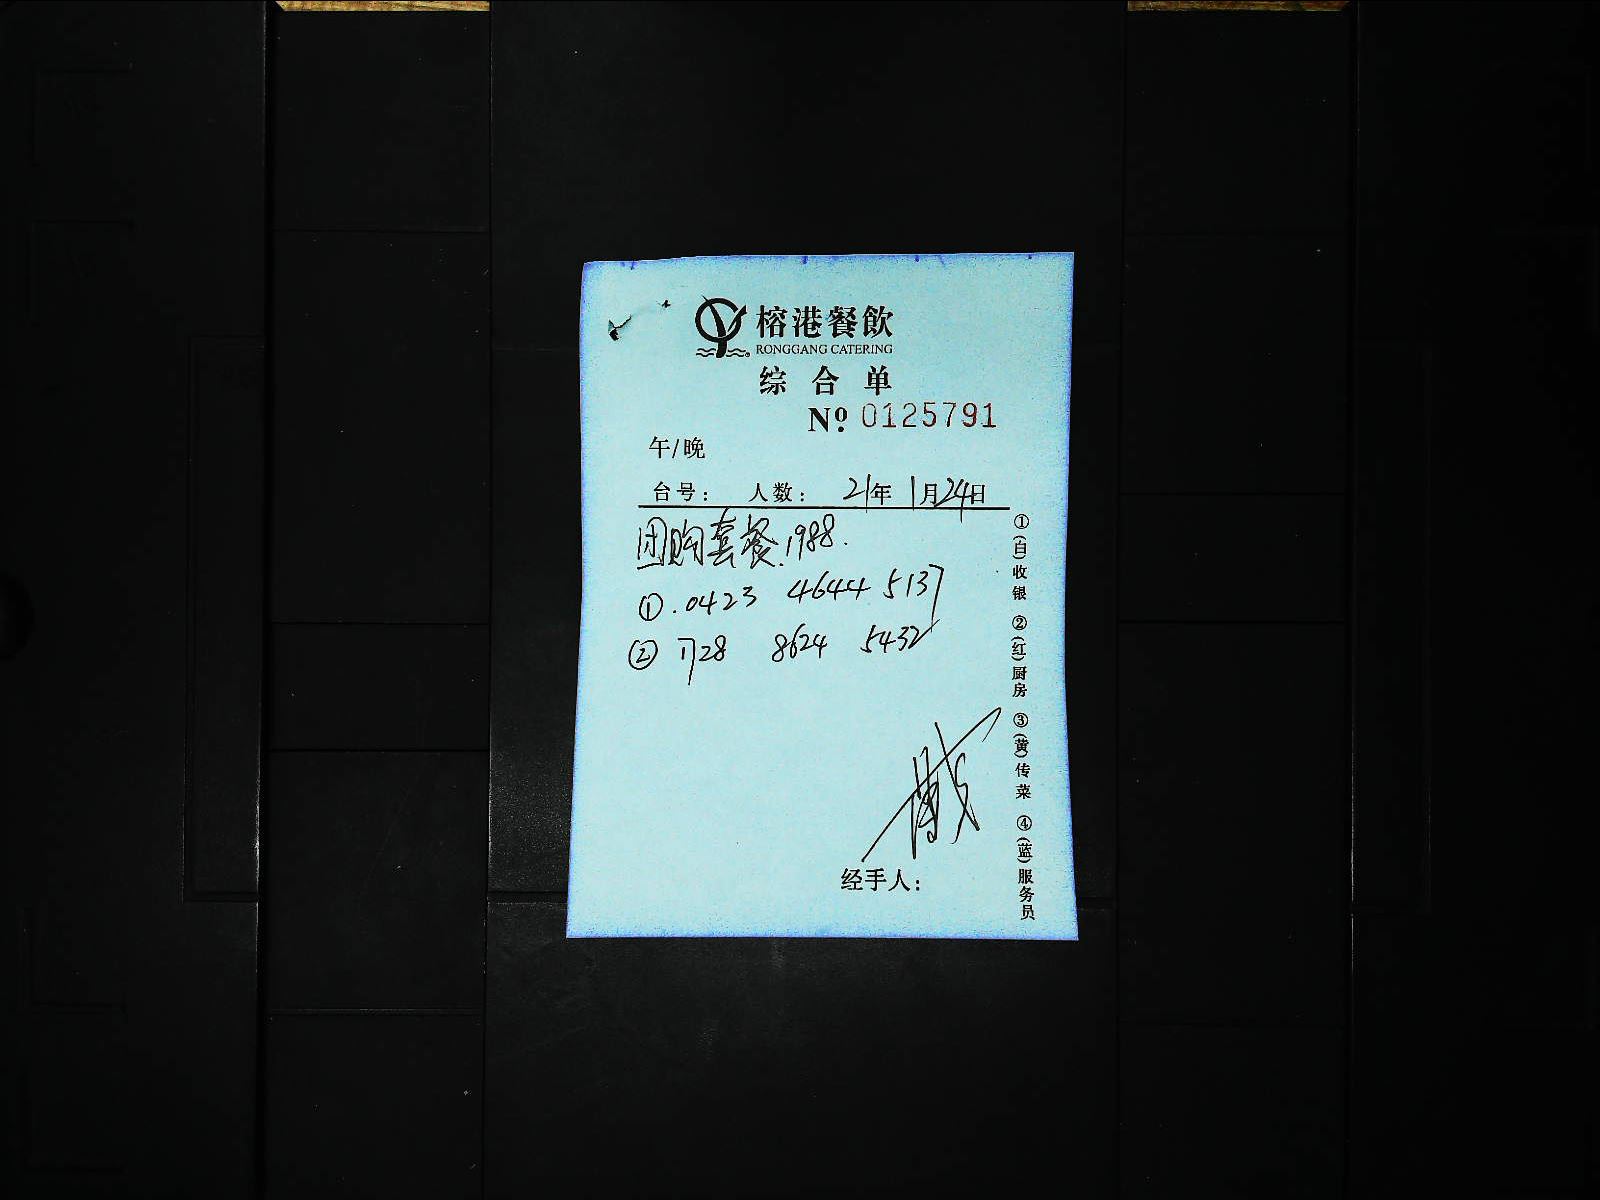 榕港餐飲
RONGGANG CATERING
综合单
Nº: 0125791
午/晚
台号: 人数: 21年 1月24日
团购套餐.1988.
①.0423 4644 5137
② 1728 8624 5432
经手人:
①(白)收银 ②(红)厨房 ③(黄)传菜 ④(蓝)服务员